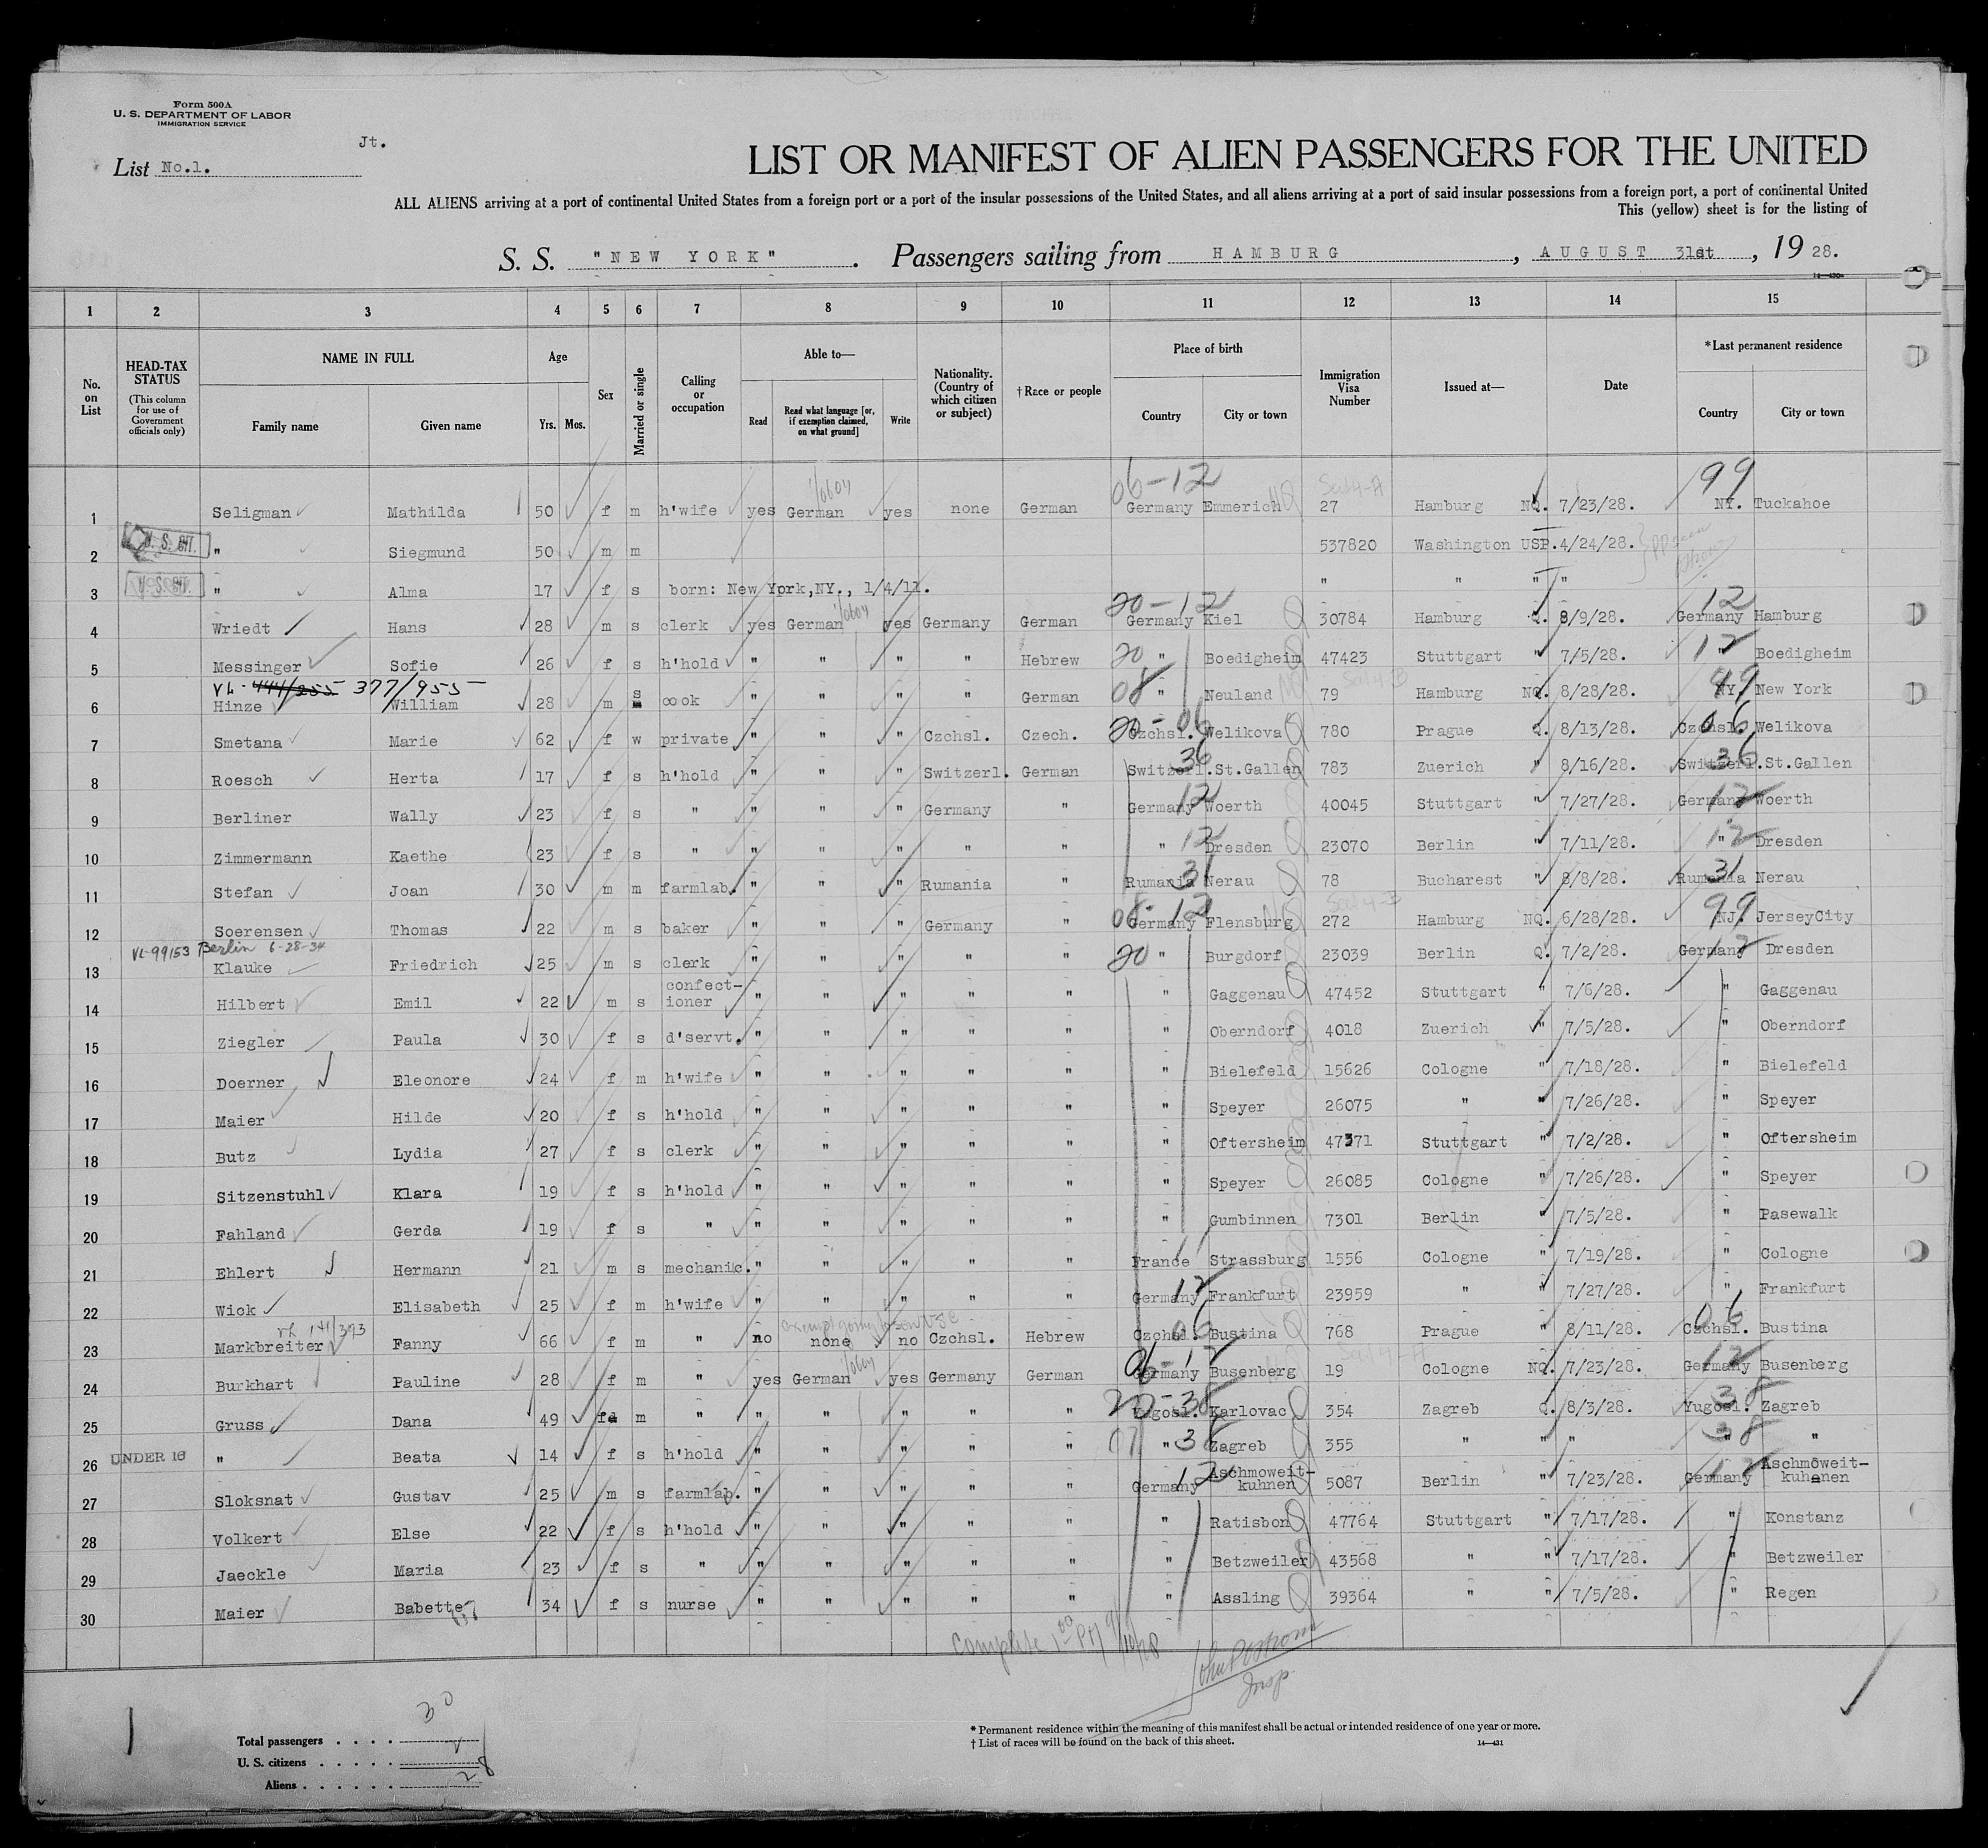 Form 500A
U. S. DEPARTMENT OF LABOR
IMMIGRATION SERVICE
Jt.
List No.1.
LIST OR MANIFEST OF ALIEN PASSENGERS FOR THE UNITED
ALL ALIENS arriving at a port of continental United States from a foreign port or a port of the insular possessions of the United States, and all aliens arriving at a port of said insular possessions from a foreign port, a port of continental United
This (yellow) sheet is for the listing of
S. S. "NEW YORK" . Passengers sailing from HAMBURG , AUGUST 31st , 19 28.
1 2 3 4 5 6 7 8 9 10 11 12 13 14 15
No. on List
HEAD-TAX STATUS (This column for use of Government officials only)
NAME IN FULL Family name Given name
Age Yrs. Mos.
Sex
Married or single
Calling or occupation
Able to— Read Read what language [or, if exemption claimed, on what ground] Write
Nationality. (Country of which citizen or subject)
† Race or people
Place of birth Country City or town
Immigration Visa Number
Issued at—
Date
* Last permanent residence Country City or town
06-12 99
1 Seligman Mathilda 50 f m h'wife yes German yes none German Germany Emmerich 27 Hamburg NQ. 7/23/28. NY. Tuckahoe
2 U. S. CIT. " Siegmund 50 m m 537820 Washington USP. 4/24/28.
3 U. S. CIT. " Alma 17 f s born: New York,NY., 1/4/11. " " " "
20-12 12
4 Wriedt Hans 28 m s clerk yes German yes Germany German Germany Kiel 30784 Hamburg Q. 8/9/28. Germany Hamburg
5 Messinger Sofie 26 f s h'hold " " " " Hebrew 20 " Boedigheim 47423 Stuttgart " 7/5/28. 12 " Boedigheim
VL- 444/255 377/955
6 Hinze William 28 m s cook " " " " German 08 " Neuland 79 Hamburg NQ. 8/28/28. 99 NY. New York
20-06 06
7 Smetana Marie 62 f w private " " " Czchsl. Czech. Czchsl. Welikova 780 Prague Q. 8/13/28. Czchsl. Welikova
36 36
8 Roesch Herta 17 f s h'hold " " " Switzerl. German Switzerl. St.Gallen 783 Zuerich " 8/16/28. Switzerl. St.Gallen
9 Berliner Wally 23 f s " " " " Germany " Germany 12 Woerth 40045 Stuttgart " 7/27/28. Germany 12 Woerth
10 Zimmermann Kaethe 23 f s " " " " " " " 12 Dresden 23070 Berlin " 7/11/28. " 12 Dresden
11 Stefan Joan 30 m m farmlab. " " " Rumania " Rumania 31 Nerau 78 Bucharest " 8/8/28. Rumania 31 Nerau
08-12 99
12 Soerensen Thomas 22 m s baker " " " Germany " Germany Flensburg 272 Hamburg NQ. 6/28/28. NJ. JerseyCity
VL-99153 Berlin 6-28-34
13 Klauke Friedrich 25 m s clerk " " " " " 20 " Burgdorf 23039 Berlin Q. 7/2/28. Germany 12 Dresden
14 Hilbert Emil 22 m s confectioner " " " " " " Gaggenau 47452 Stuttgart " 7/6/28. " Gaggenau
15 Ziegler Paula 30 f s d'servt. " " " " " " Oberndorf 4018 Zuerich " 7/5/28. " Oberndorf
16 Doerner Eleonore 24 f m h'wife " " " " " " Bielefeld 15626 Cologne " 7/18/28. " Bielefeld
17 Maier Hilde 20 f s h'hold " " " " " " Speyer 26075 " " 7/26/28. " Speyer
18 Butz Lydia 27 f s clerk " " " " " " Oftersheim 47371 Stuttgart " 7/2/28. " Oftersheim
19 Sitzenstuhl Klara 19 f s h'hold " " " " " " Speyer 26085 Cologne " 7/26/28. " Speyer
20 Fahland Gerda 19 f s " " " " " " " Gumbinnen 7301 Berlin " 7/5/28. " Pasewalk
21 Ehlert Hermann 21 m s mechanic. " " " " " France Strassburg 1556 Cologne " 7/19/28. " Cologne
22 Wick Elisabeth 25 f m h'wife " " " " " Germany 12 Frankfurt 23959 " " 7/27/28. " Frankfurt
VL 141/393 06 06
23 Markbreiter Fanny 66 f m " no none no Czchsl. Hebrew Czchsl. Bustina 768 Prague " 8/11/28. Czchsl. Bustina
06-12 12
24 Burkhart Pauline 28 f m " yes German yes Germany German Germany Busenberg 19 Cologne NQ. 7/23/28. Germany Busenberg
20-38 38
25 Gruss Dana 49 f m " " " " " " Yugosl. Karlovac 354 Zagreb Q. 8/3/28. Yugosl. Zagreb
26 UNDER 16 " Beata 14 f s h'hold " " " " " 01 " 38 Zagreb 355 " " " 38 " "
27 Sloksnat Gustav 25 m s farmlab. " " " " " Germany 12 Aschmoweit-kuhnen 5087 Berlin " 7/23/28. Germany 12 Aschmoweit-kuhenen
28 Volkert Else 22 f s h'hold " " " " " " Ratisbon 47764 Stuttgart " 7/17/28. " Konstanz
29 Jaeckle Maria 23 f s " " " " " " " Betzweiler 43568 " " 7/17/28. " Betzweiler
30 Maier Babette 34 f s nurse " " " " " " Assling 39364 " " 7/5/28. " Regen
Complete 1 00 PM 9/10/28
Total passengers . . . . 30
U. S. citizens . . . . .
Aliens . . . . . . 28
* Permanent residence within the meaning of this manifest shall be actual or intended residence of one year or more.
† List of races will be found on the back of this sheet.
14—431